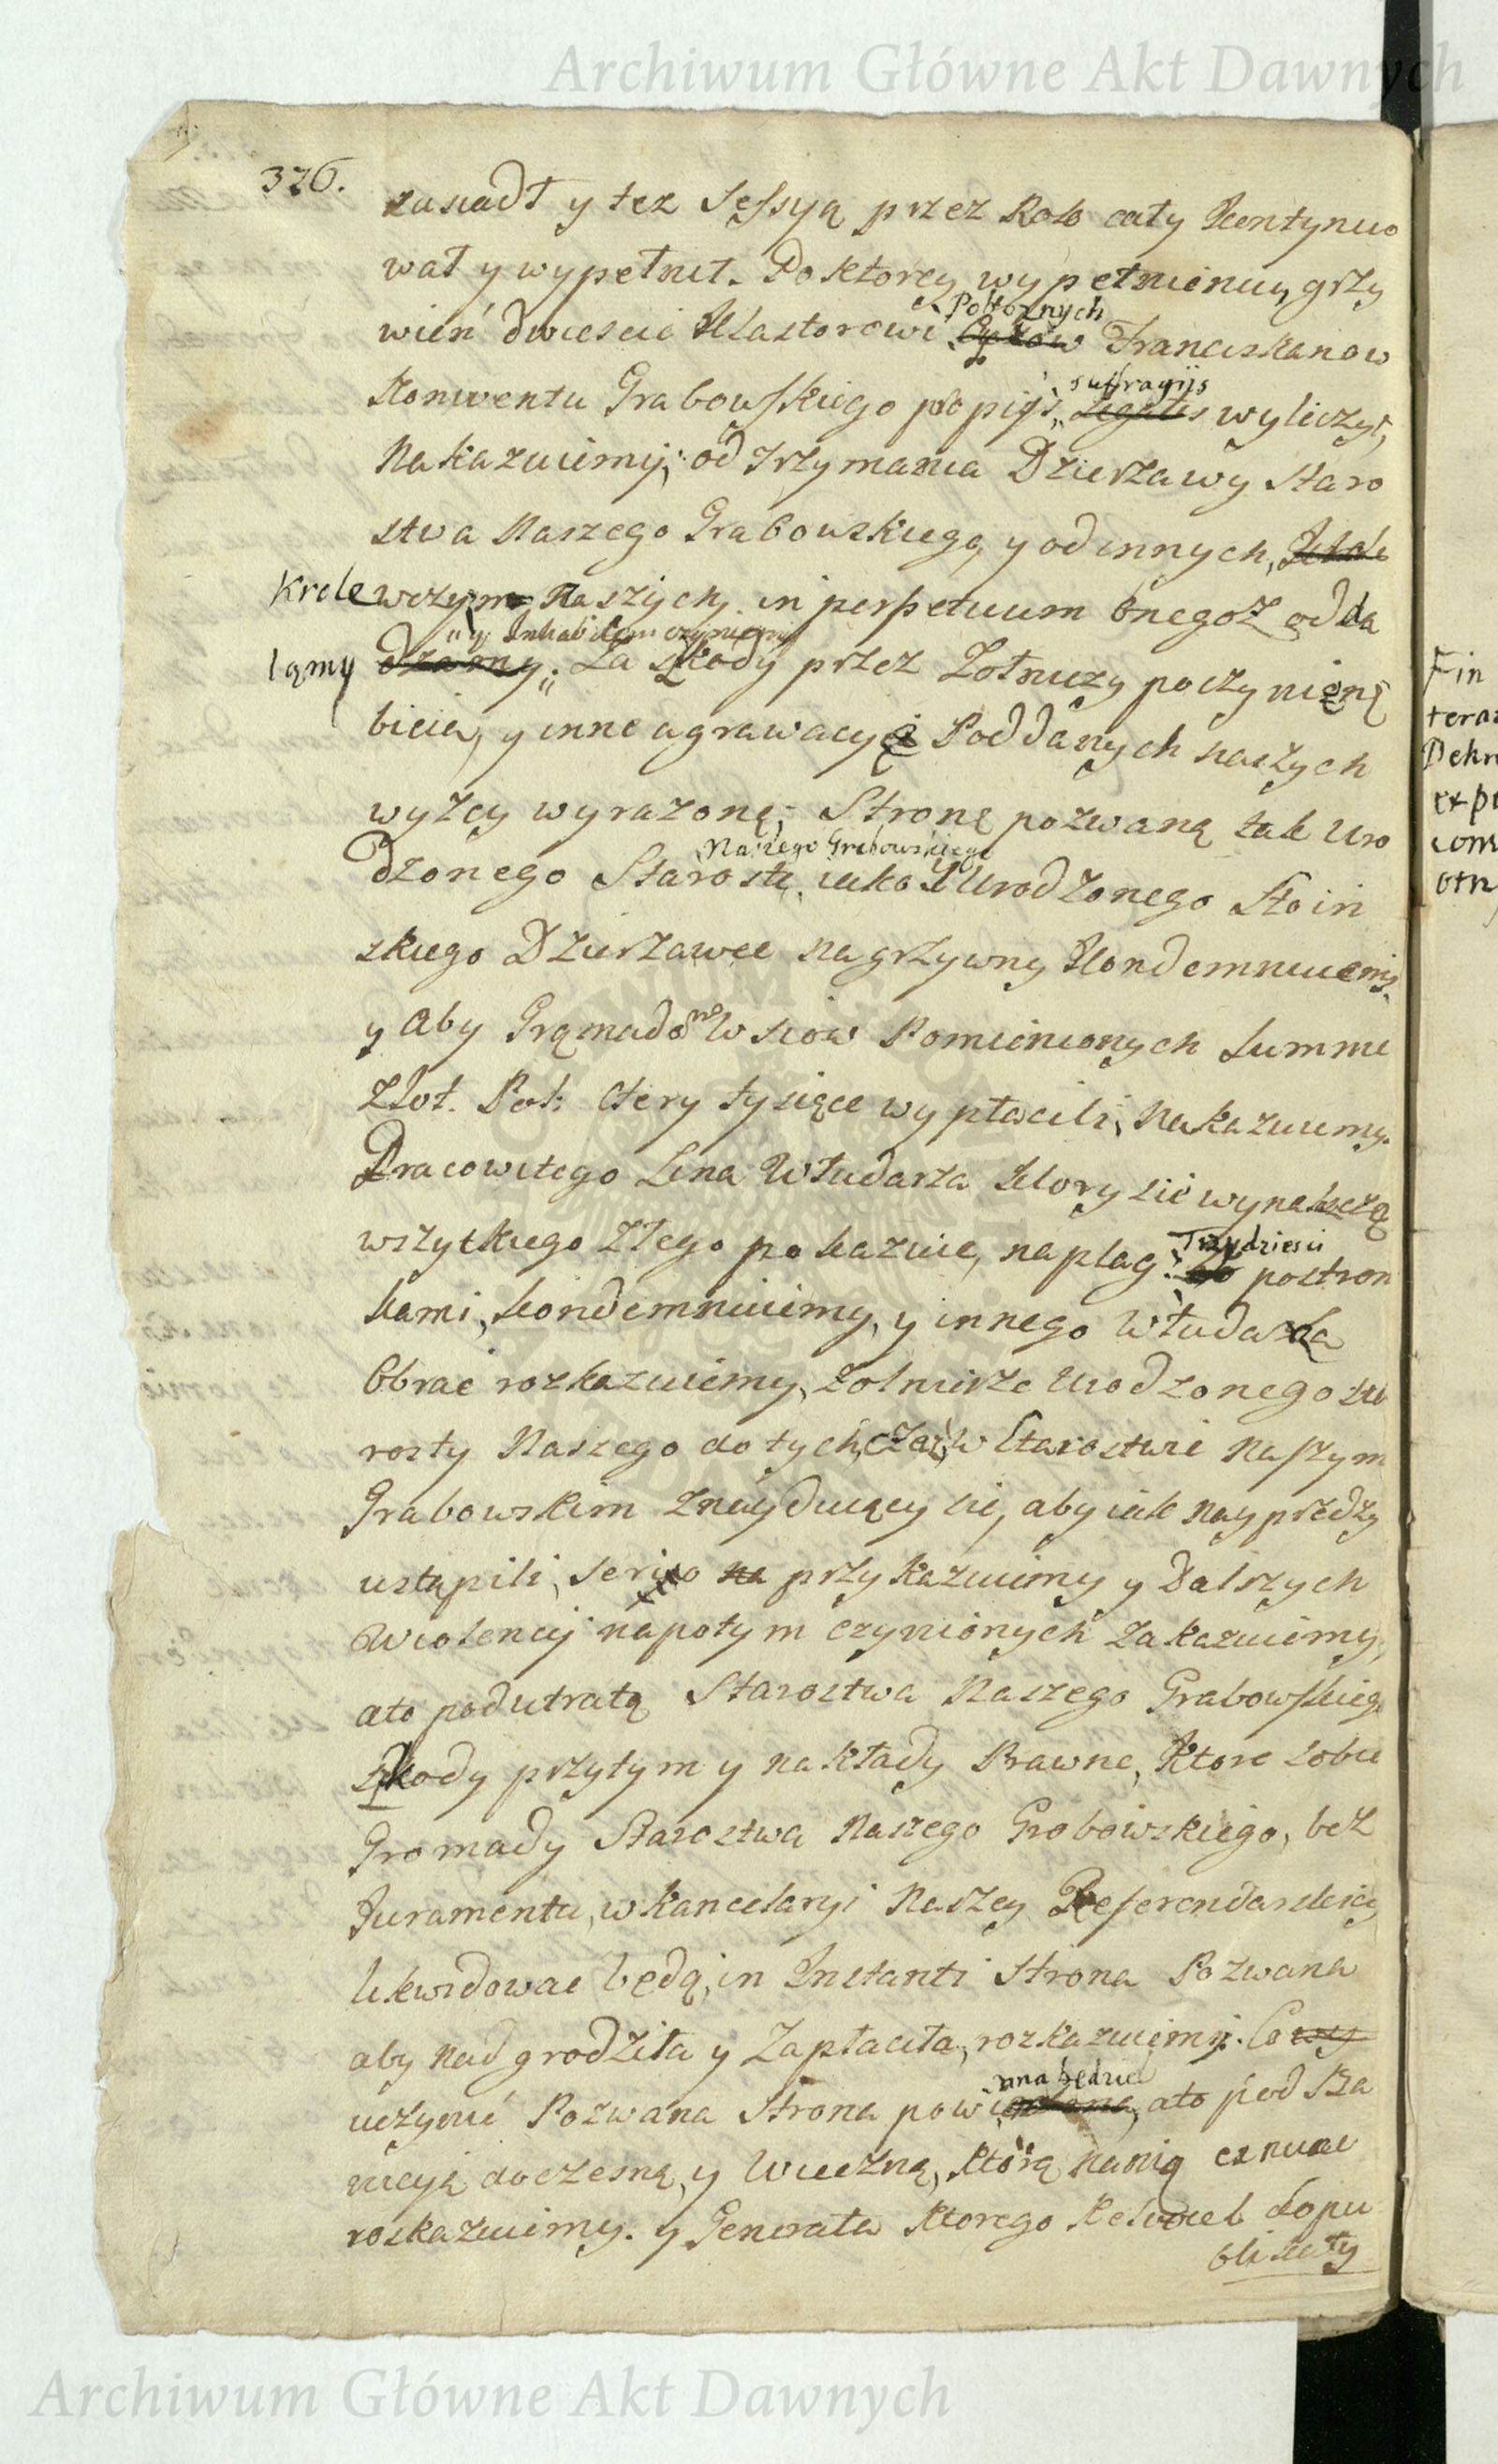 Archiwum Główne Akt Dawnych
326.
zasiadł y tez Sessyą przez Rok cały kontynuo
wał y wypełnił. Po ktorey wypełnieniu, grzy
Poboznych
wień dwiescie Klasztorowi Franciszkanow
suffragijs
Konwentu Grabowskiego pro pijs wyliczyć,
Nakazuiemy; od trzymania Dzierzawy Staro
stwa Naszego Grabowskiego, y od innych, Krole
Krolewczyzn Naszych in perpetuum onegoz odda
y Inhabilem czyniemy
lamy dzamy; Za szkody przez Zołnierzy poczynione
bicia, y inne agrawacye Poddanych naszych
wyzey wyrazone; Stronę pozwaną tak Uro
Naszego Grabowskiego
dzonego Starostę iako y Urodzonego Stoin
skiego Dzierzawce na grzywny kondemnuiemy,
y aby Gromadom Wsiow Pomienionych Summe
Złot. Pol: cztery tysiące wypłacili, Nakazuiemy.
Pracowitego Włudarza ktory sie wynalazcą
Trzydziesci
wszytkiego złego pokazuie, na plag postron
kami, kondemnuiemy, y innego Włudarza
Obrać rozkazuiemy, Zołnierze Urodzonego Sta
rosty Naszego do tych czas w Starostwie Naszym
Grabowskim znayduiący sie, aby iak nayprędzy
ustąpili, serio przykazuiemy y Dalszych
Wiolencij napotym czynionych zakazuiemy,
a to pod utratą Starostwa Naszego Grabowskiego
Szkody przytym y nakłady Prawne, Ktore sobie
Gromady Starostwa Naszego Grabowskiego, bez
Juramentu, w kancelaryi Naszey Referendarskiey
likwidować będą, in Instanti Strona Pozwana
aby nadgrodziła y Zapłaciła, rozkazuiemy. Co
nna będzie
uczynić Pozwana Strona powi a to pod Ba
nicyą doczesną, y Wieczną, ktorą na nią ex nunc
roskazuiemy. y Generała ktorego kolwiek dopu
blikaty
Fin
Dekr
Archiwum Główne Akt Dawnych